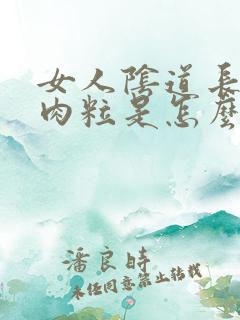 女人陰道長
肉粒是怎麼
潘良時
未经同意禁止转载